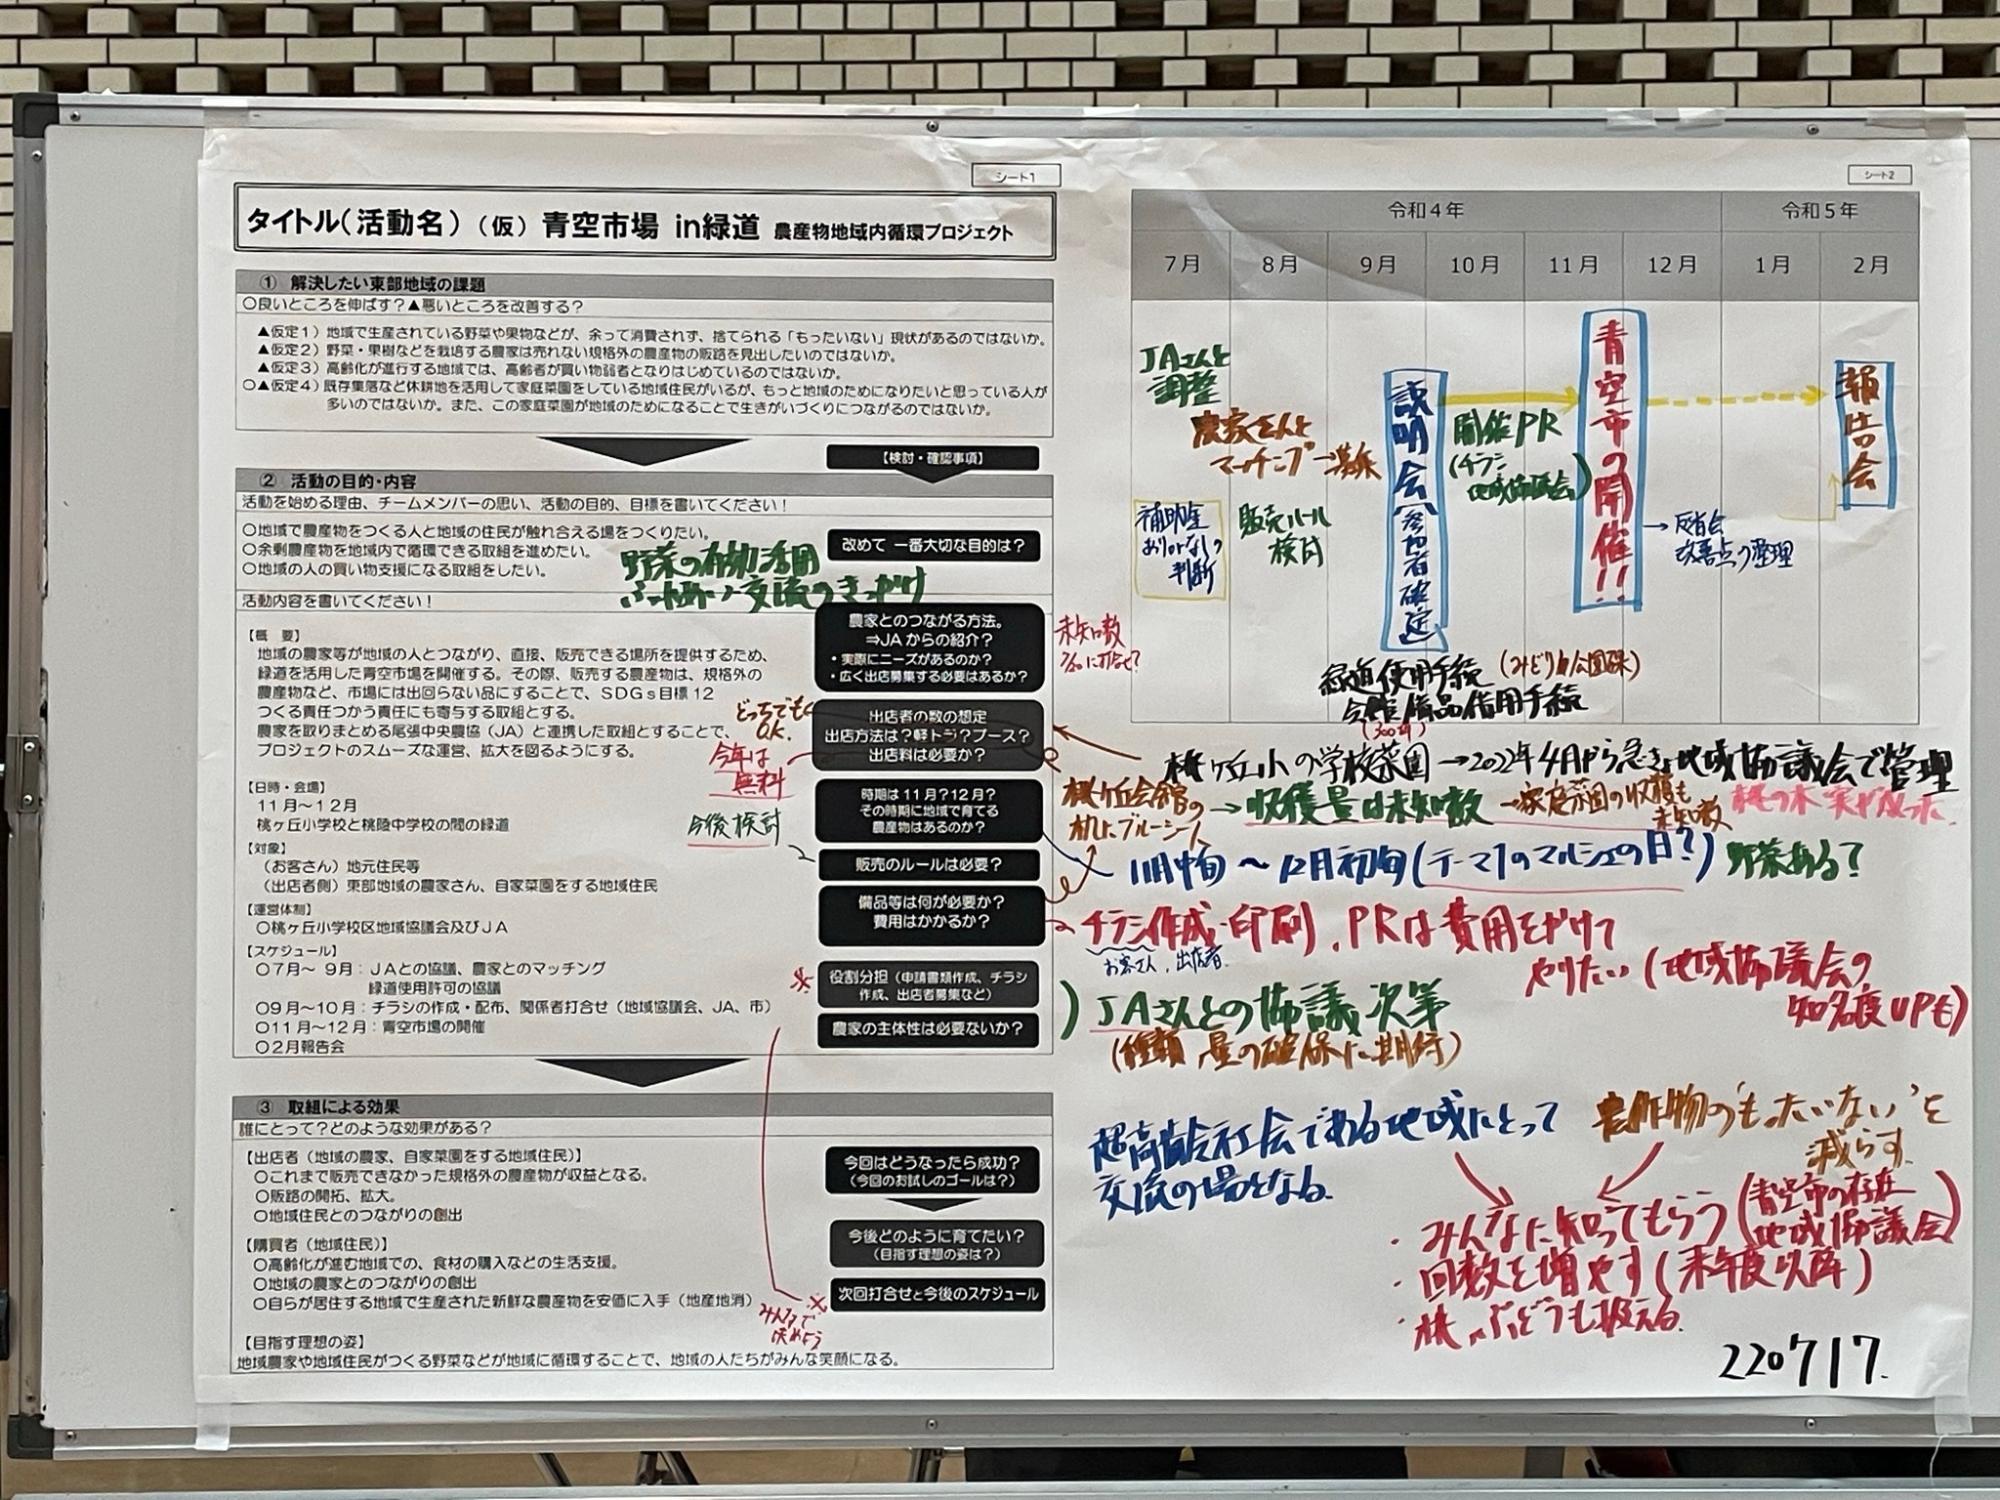 シート1
タイトル(活動名)(仮)青空市場 in緑道 農産物地域内循環プロジェクト
① 解決したい東部地域の課題
○良いところを伸ばす?▲悪いところを改善する?
▲仮定1)地域で生産されている野菜や果物などが、余って消費されず、捨てられる「もったいない」現状があるのではないか。
▲仮定2)野菜・果樹などを栽培する農家は売れない規格外の農産物の販路を見出したいのではないか。
▲仮定3)高齢化が進行する地域では、高齢者が買い物弱者となりはじめているのではないか。
○▲仮定4)既存集落など休耕地を活用して家庭菜園をしている地域住民がいるが、もっと地域のためになりたいと思っている人が
多いのではないか。また、この家庭菜園が地域のためになることで生きがいづくりにつながるのではないか。
【検討・確認事項】
② 活動の目的・内容
活動を始める理由、チームメンバーの思い、活動の目的、目標を書いてください!
○地域で農産物をつくる人と地域の住民が触れ合える場をつくりたい。
○余剰農産物を地域内で循環できる取組を進めたい。
○地域の人の買い物支援になる取組をしたい。
改めて 一番大切な目的は?
野菜の有効活用
ふれあい、交流のきっかけ
活動内容を書いてください!
【概 要】
地域の農家等が地域の人とつながり、直接、販売できる場所を提供するため、
緑道を活用した青空市場を開催する。その際、販売する農産物は、規格外の
農産物など、市場には出回らない品にすることで、SDGs目標12
つくる責任つかう責任にも寄与する取組とする。
農家を取りまとめる尾張中央農協(JA)と連携した取組とすることで、
プロジェクトのスムーズな運営、拡大を図るようにする。
【日時・会場】
11月~12月
桃ヶ丘小学校と桃陵中学校の間の緑道
【対象】
(お客さん)地元住民等
(出店者側)東部地域の農家さん、自家菜園をする地域住民
【運営体制】
○桃ヶ丘小学校区地域協議会及びJA
【スケジュール】
○7月~ 9月:JAとの協議、農家とのマッチング
緑道使用許可の協議
○9月~10月:チラシの作成・配布、関係者打合せ(地域協議会、JA、市)
○11月~12月:青空市場の開催
○2月報告会
農家とのつながる方法。
⇒JAからの紹介?
・実際にニーズがあるのか?
・広く出店募集する必要はあるか?
未知数
どっちでも
OK.
出店者の数の想定
出店方法は?軽トラ?ブース?
出店料は必要か?
今年は
無料
時期は11月?12月?
その時期に地域で育てる
農産物はあるのか?
今後検討
販売のルールは必要?
備品等は何が必要か?
費用はかかるか?
※
役割分担(申請書類作成、チラシ
作成、出店者募集など)
農家の主体性は必要ないか?
③ 取組による効果
誰にとって?どのような効果がある?
【出店者(地域の農家、自家菜園をする地域住民)】
○これまで販売できなかった規格外の農産物が収益となる。
○販路の開拓、拡大。
○地域住民とのつながりの創出
【購買者(地域住民)】
○高齢化が進む地域での、食材の購入などの生活支援。
○地域の農家とのつながりの創出
○自らが居住する地域で生産された新鮮な農産物を安価に入手(地産地消)
【目指す理想の姿】
地域農家や地域住民がつくる野菜などが地域に循環することで、地域の人たちがみんな笑顔になる。
今回はどうなったら成功?
(今回のお試しのゴールは?)
今後どのように育てたい?
(目指す理想の姿は?)
次回打合せと今後のスケジュール
※
みんなで
決めよう
シート2
令和4年 令和5年
7月 8月 9月 10月 11月 12月 1月 2月
JAさんと
調整
農家さんと
マッチング→募集
補助金
ありorなしの
判断
販売ルール
検討
説明会(参加者確定)
開催PR
(チラシ
地域協議会)
青空市の開催!!
→反省会
改善点の整理
報告会
緑道使用手続(みどり公園課)
会館備品借用手続
桃ヶ丘小の学校菜園→2022年4月から急きょ地域協議会で管理
桃ヶ丘会館の
机にブルーシート
→収穫量は未知数
→家庭菜園の収穫も
未知数
11月中旬~12月初旬(テーマ1のマルシェの日?)野菜ある?
チラシ作成・印刷、PRは費用をかけて
お客さん、出店者
やりたい(地域協議会の
知名度UPも)
JAさんとの協議次第
(種類、量の確保に期待)
超高齢社会である地域にとって
交流の場となる.
農作物の'もったいない'を
減らす.
・みんなに知ってもらう(青空市の存在
地域協議会)
・回数を増やす(来年度以降)
・桃、ぶどうも扱える.
220717.